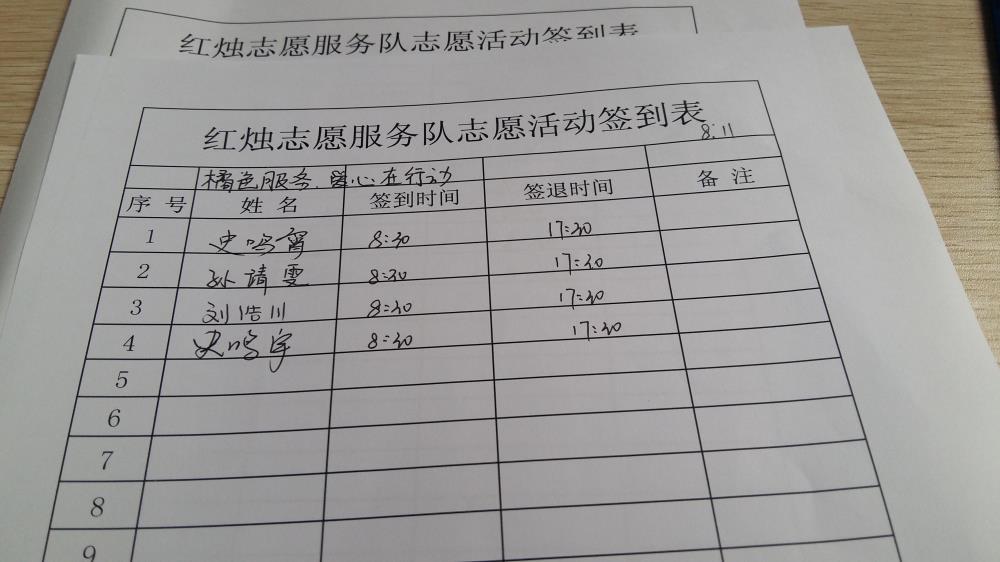 红烛志愿服务队志愿活动签到表
红烛志愿服务队志愿活动签到表
8:11
橘色服务.爱心在行动
序号 姓名 签到时间 签退时间 备注
1 史鸣霄 8:30 17:30
2 孙请雯 8:30 17:30
3 刘浩川 8:30 17:30
4 史鸣宇 8:30 17:30
5
6
7
8
9